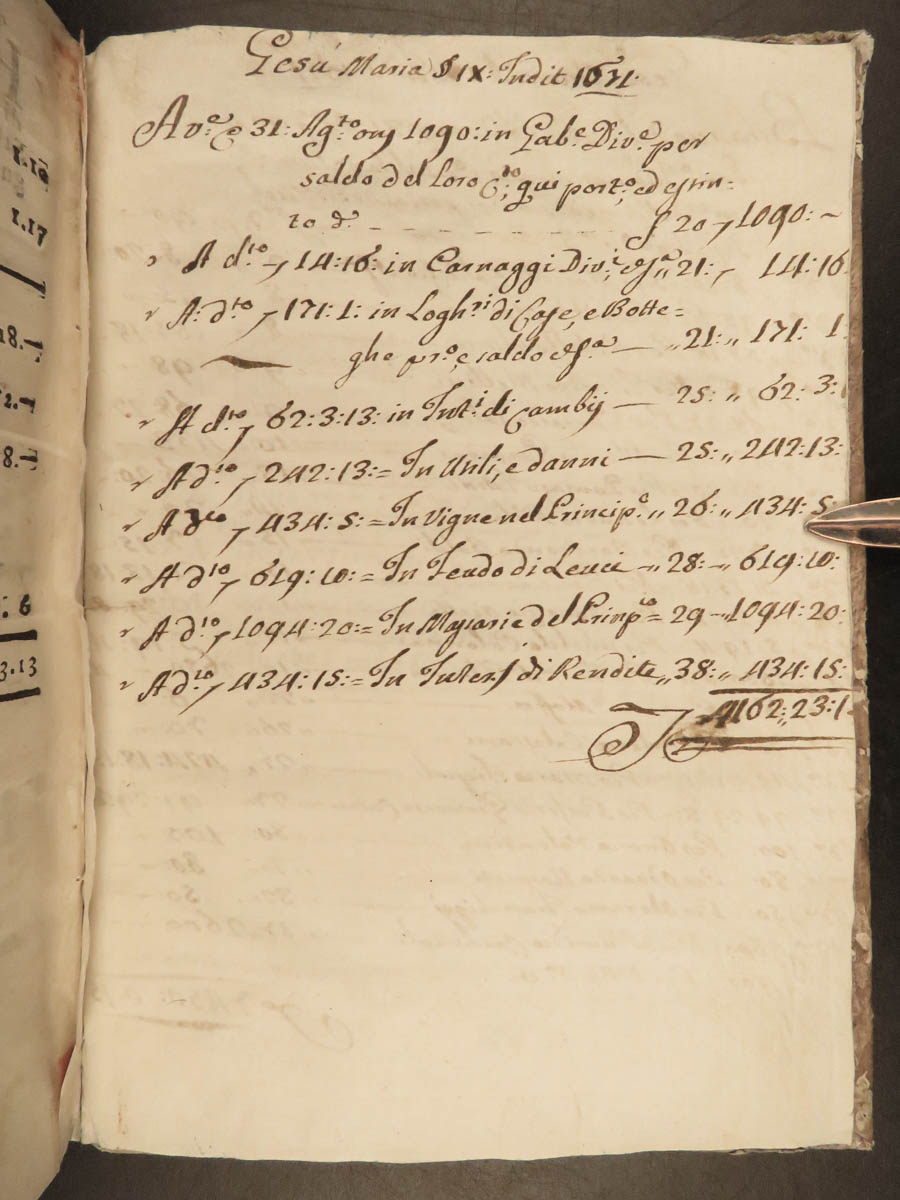 1.10
1.17
18.-
12.-
8.-
6
3.13
Gesú Maria IX: Indit 1671.
Av.e 31: Ag.to 1090: in Gab.e Div.e per
saldo del loro C.to, qui port.o, ed estin=
to d. - - - - - - - f 20 1090: ~
A d.to 14:16: in Carnaggi Div.i 21: 14:16
A: d.to 171:1: in Logh.ri di Case, e Botte=
ghe pr.o, e saldo — ,,21: ,, 171: 1:
A d.to 62:3:13: in Int.i di Cambij — 25: ,, 62: 3:
A d.to 242:13:= In Utili, e danni — 25: ,, 242:13:
A d.to 434:5:= In Vigne nel Princip.e ,, 26: ,, 434:5:
A d.to 619:10:= In Feudo di Leuci ~ 28: ~ 619:10:
A d.to 1094:20:= In Massarie del Prinp.to = 29 ~ 1094:20:
A d.to 434:15:= In Inters di Rendite ,, 38: ,, 434:15:
4162:23:1